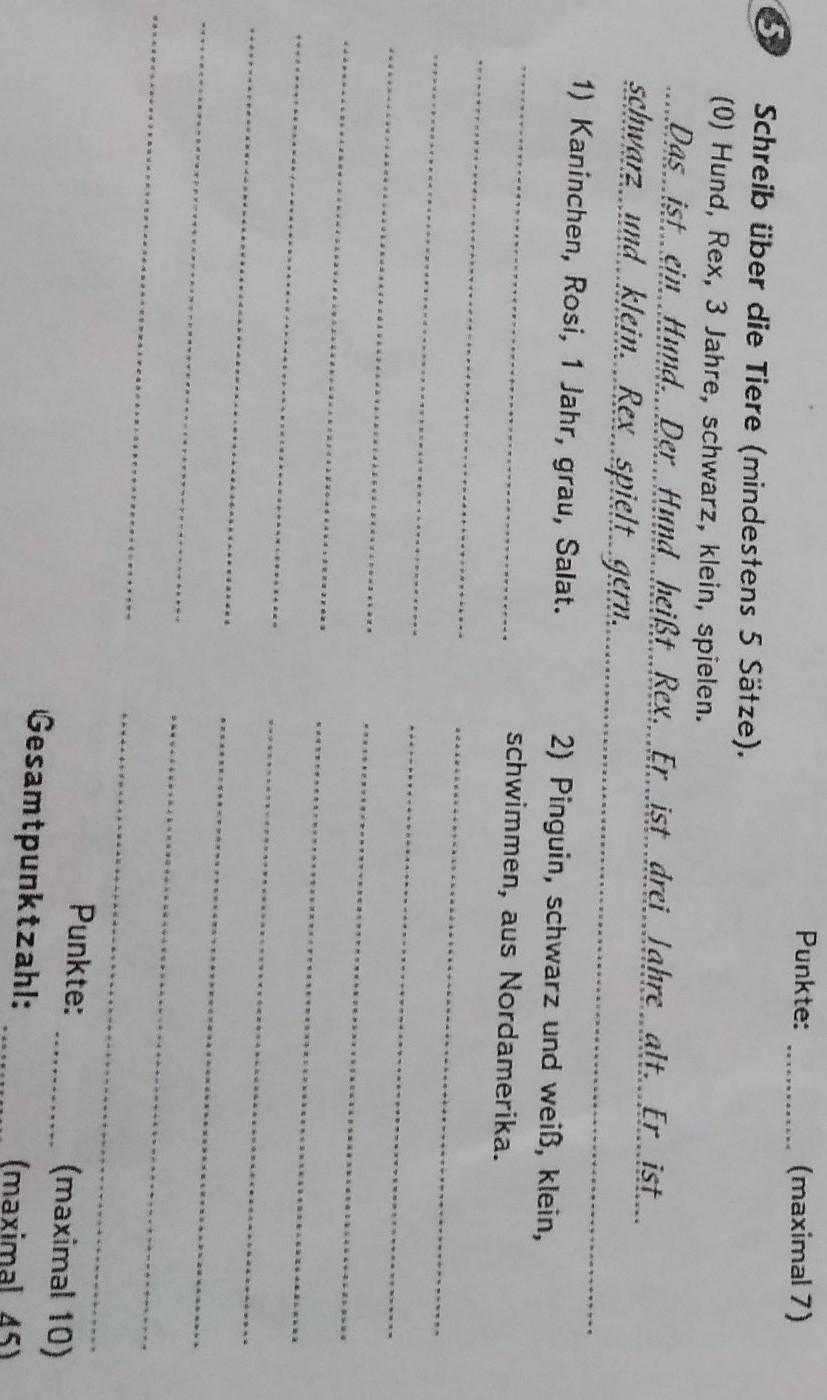 Punkte: ............ (maximal 7)
5 Schreib über die Tiere (mindestens 5 Sätze).
(0) Hund, Rex, 3 Jahre, schwarz, klein, spielen.
Das ist ein Hund. Der Hund heißt Rex. Er ist drei Jahre alt. Er ist
schwarz und klein. Rex spielt gern.
1) Kaninchen, Rosi, 1 Jahr, grau, Salat.
2) Pinguin, schwarz und weiß, klein,
schwimmen, aus Nordamerika.
Punkte: ............ (maximal 10)
Gesamtpunktzahl: ............ (maximal 45)